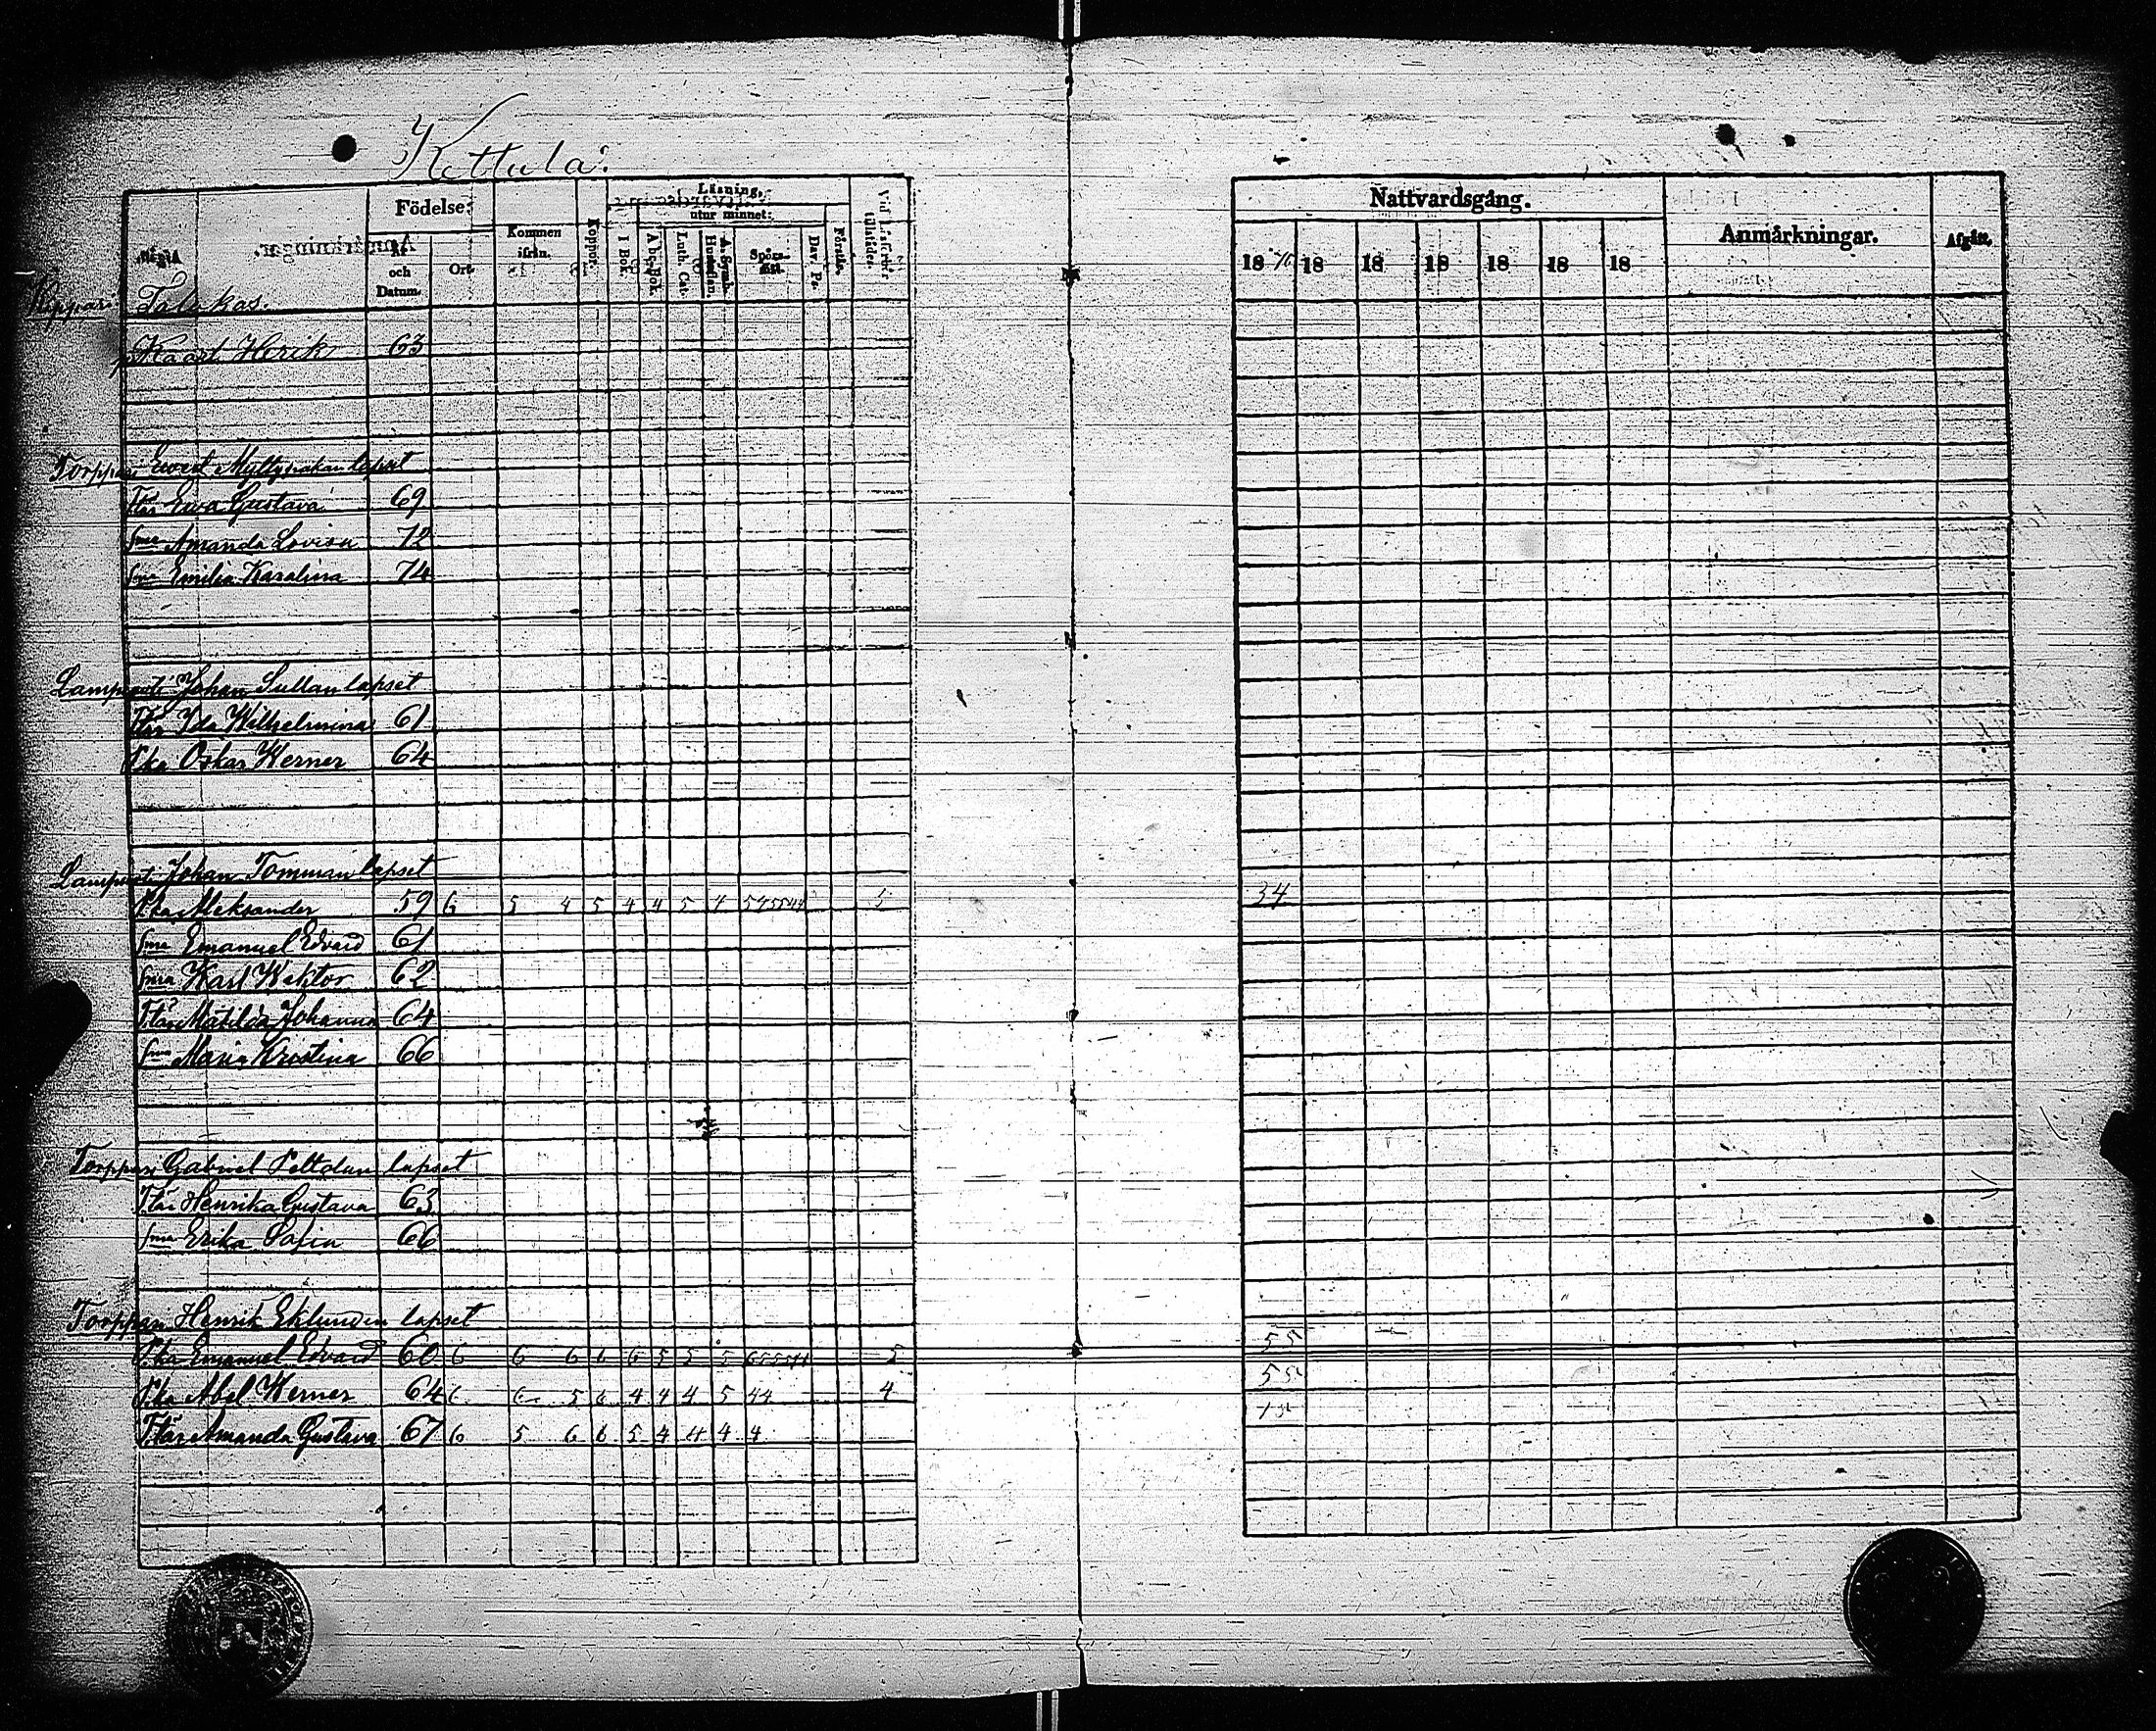 Kettula.
Födelse:
Läsning,
utur minnet:
Kommen
ifrån.
Koppor.
I Bok.
A b c-Bok.
Luth. Cat.
Spörs-
mål.
Dav. Ps.
Förstår.
Ort.
och
Datum.
Nattvardsgång.
Anmärkningar.
Afgått.
18 76 18 18 18 18 18 18
Talukas.
Kaarl Herik 63
Torppari lapset
Ttär Ewa Gustava 69
sma Amanda Lovisa 72
sma Emilia Karalina 74
Johan Sullan lapset
Ttär Ida Wilhelmina 61
Pka Oskar Werner 64
Johan Tomman lapset
Pka Aleksander 59 6 5 4 5 4 4 5 4 5 34
sma Emanuel Edvard 61
sma Karl Wiktor 62
Ttär Matilda Johanna 64
sma Maria Kristina 66
Torppari Gabriel lapset
Ttär Henrika Gustava 63
sma Erika Sofia 66
Torppari Henrik Eklundin lapset
Pka Emanuel Edvard 60 6 6 6 6 6 5 5 5 5 55
Pka Abel Werner 64 6 6 5 6 4 4 4 5 44 4 55
Ttär Amanda Gustava 67 6 5 6 6 5 4 4 4 4